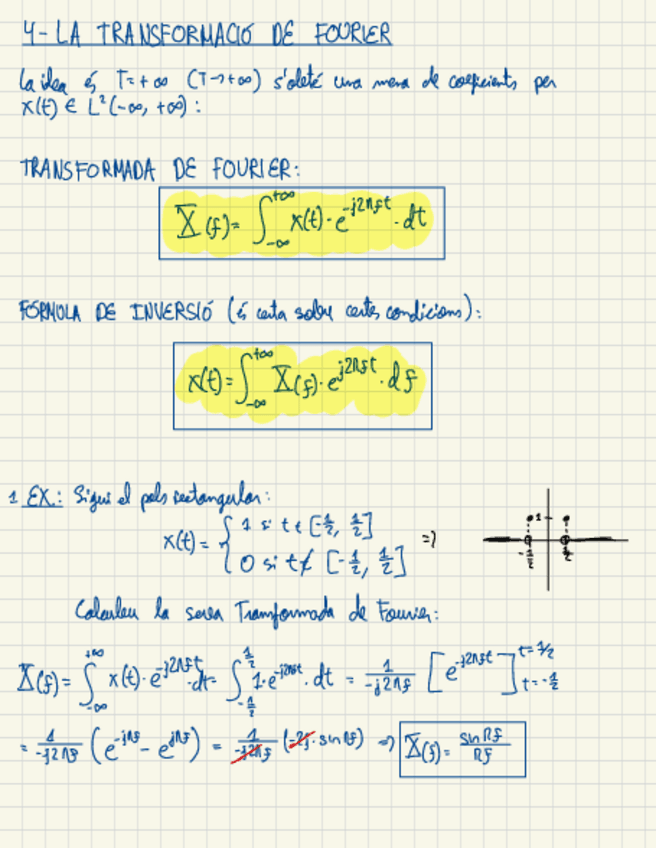 4-LA TRANSFORMACIÓ DE FOURIER
La idea és T=+∞ (T→+∞) s'obté una mena de coeficients per
x(t) ∈ L²(-∞, +∞):
TRANSFORMADA DE FOURIER:
X(f) = ∫_{-∞}^{+∞} x(t)·e^{-j2πft}·dt
FÓRMULA DE INVERSIÓ (és certa sobre certes condicions):
x(t) = ∫_{-∞}^{+∞} X(f)·e^{j2πft}·df
1 EX.: Sigui el pols rectangular:
x(t) = { 1 si t ∈ [-1/2, 1/2]
0 si t ∉ [-1/2, 1/2] =>
1
-1/2 1/2
Calculeu la seva Transformada de Fourier:
X(f) = ∫_{-∞}^{+∞} x(t)·e^{-j2πft}·dt = ∫_{-1/2}^{1/2} 1·e^{-j2πft}·dt = 1/(-j2πf) [e^{-j2πft}]_{t=-1/2}^{t=1/2}
= 1/(-j2πf) (e^{-jπf} - e^{jπf}) = 1/(-j2πf) (-2j·sin πf) => X(f) = sin πf / πf